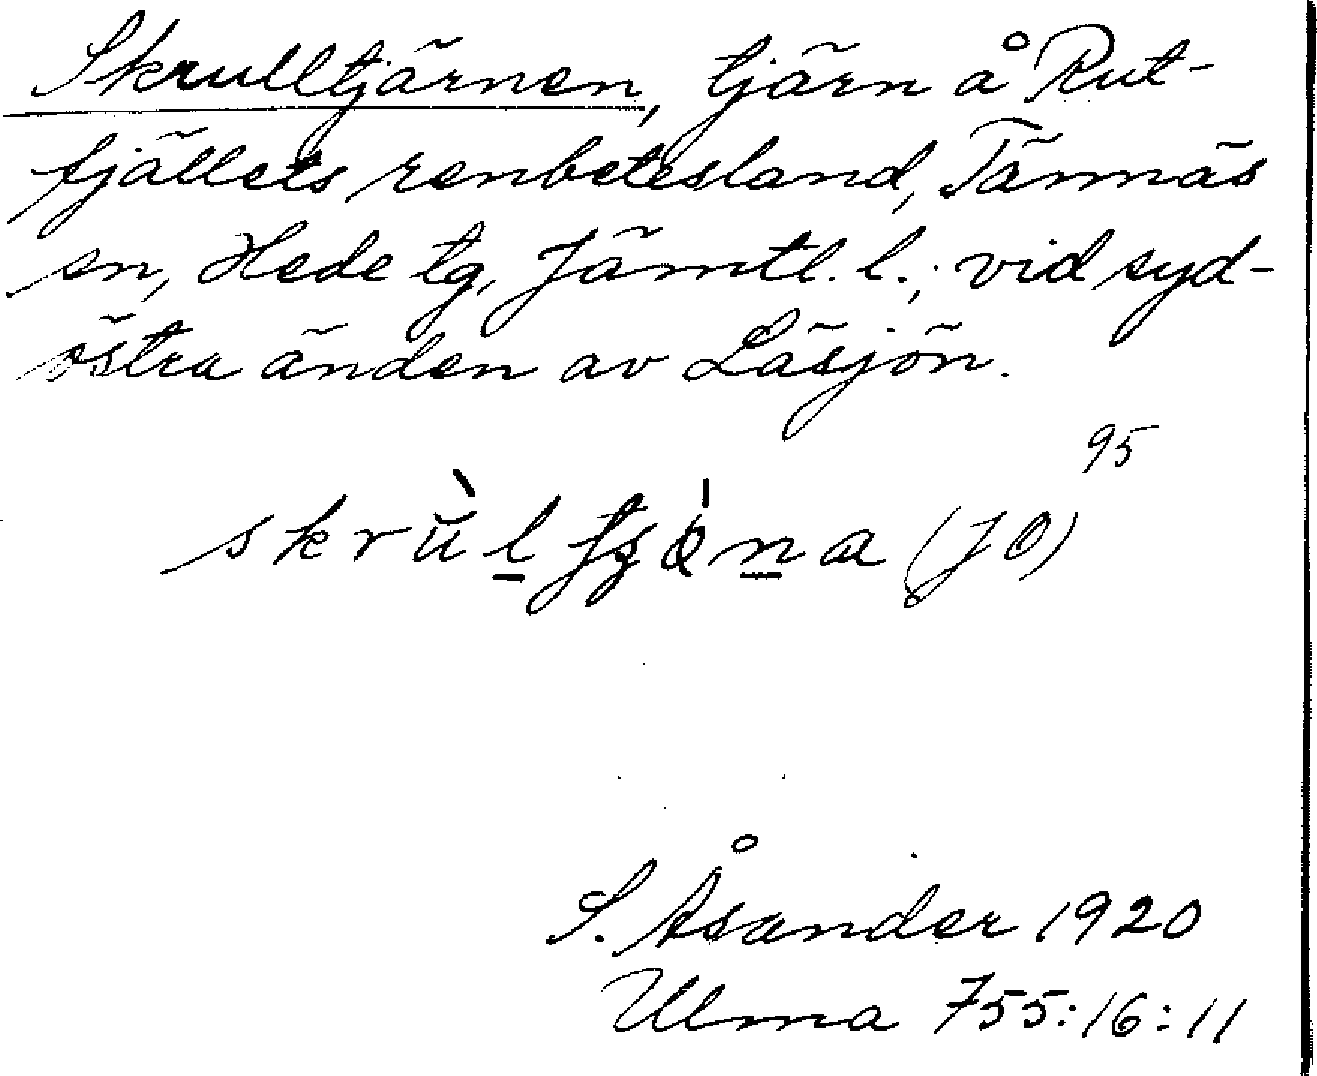 Skrulltjärnen, tjärn å Rut-
fjällets renbetesland, Tännäs
sn, Hede tg, Jämtl. l.; vid syd-
östra änden av Läsjön.
95
(JO)
S. Åsander 1920
Ulma 755:16:11